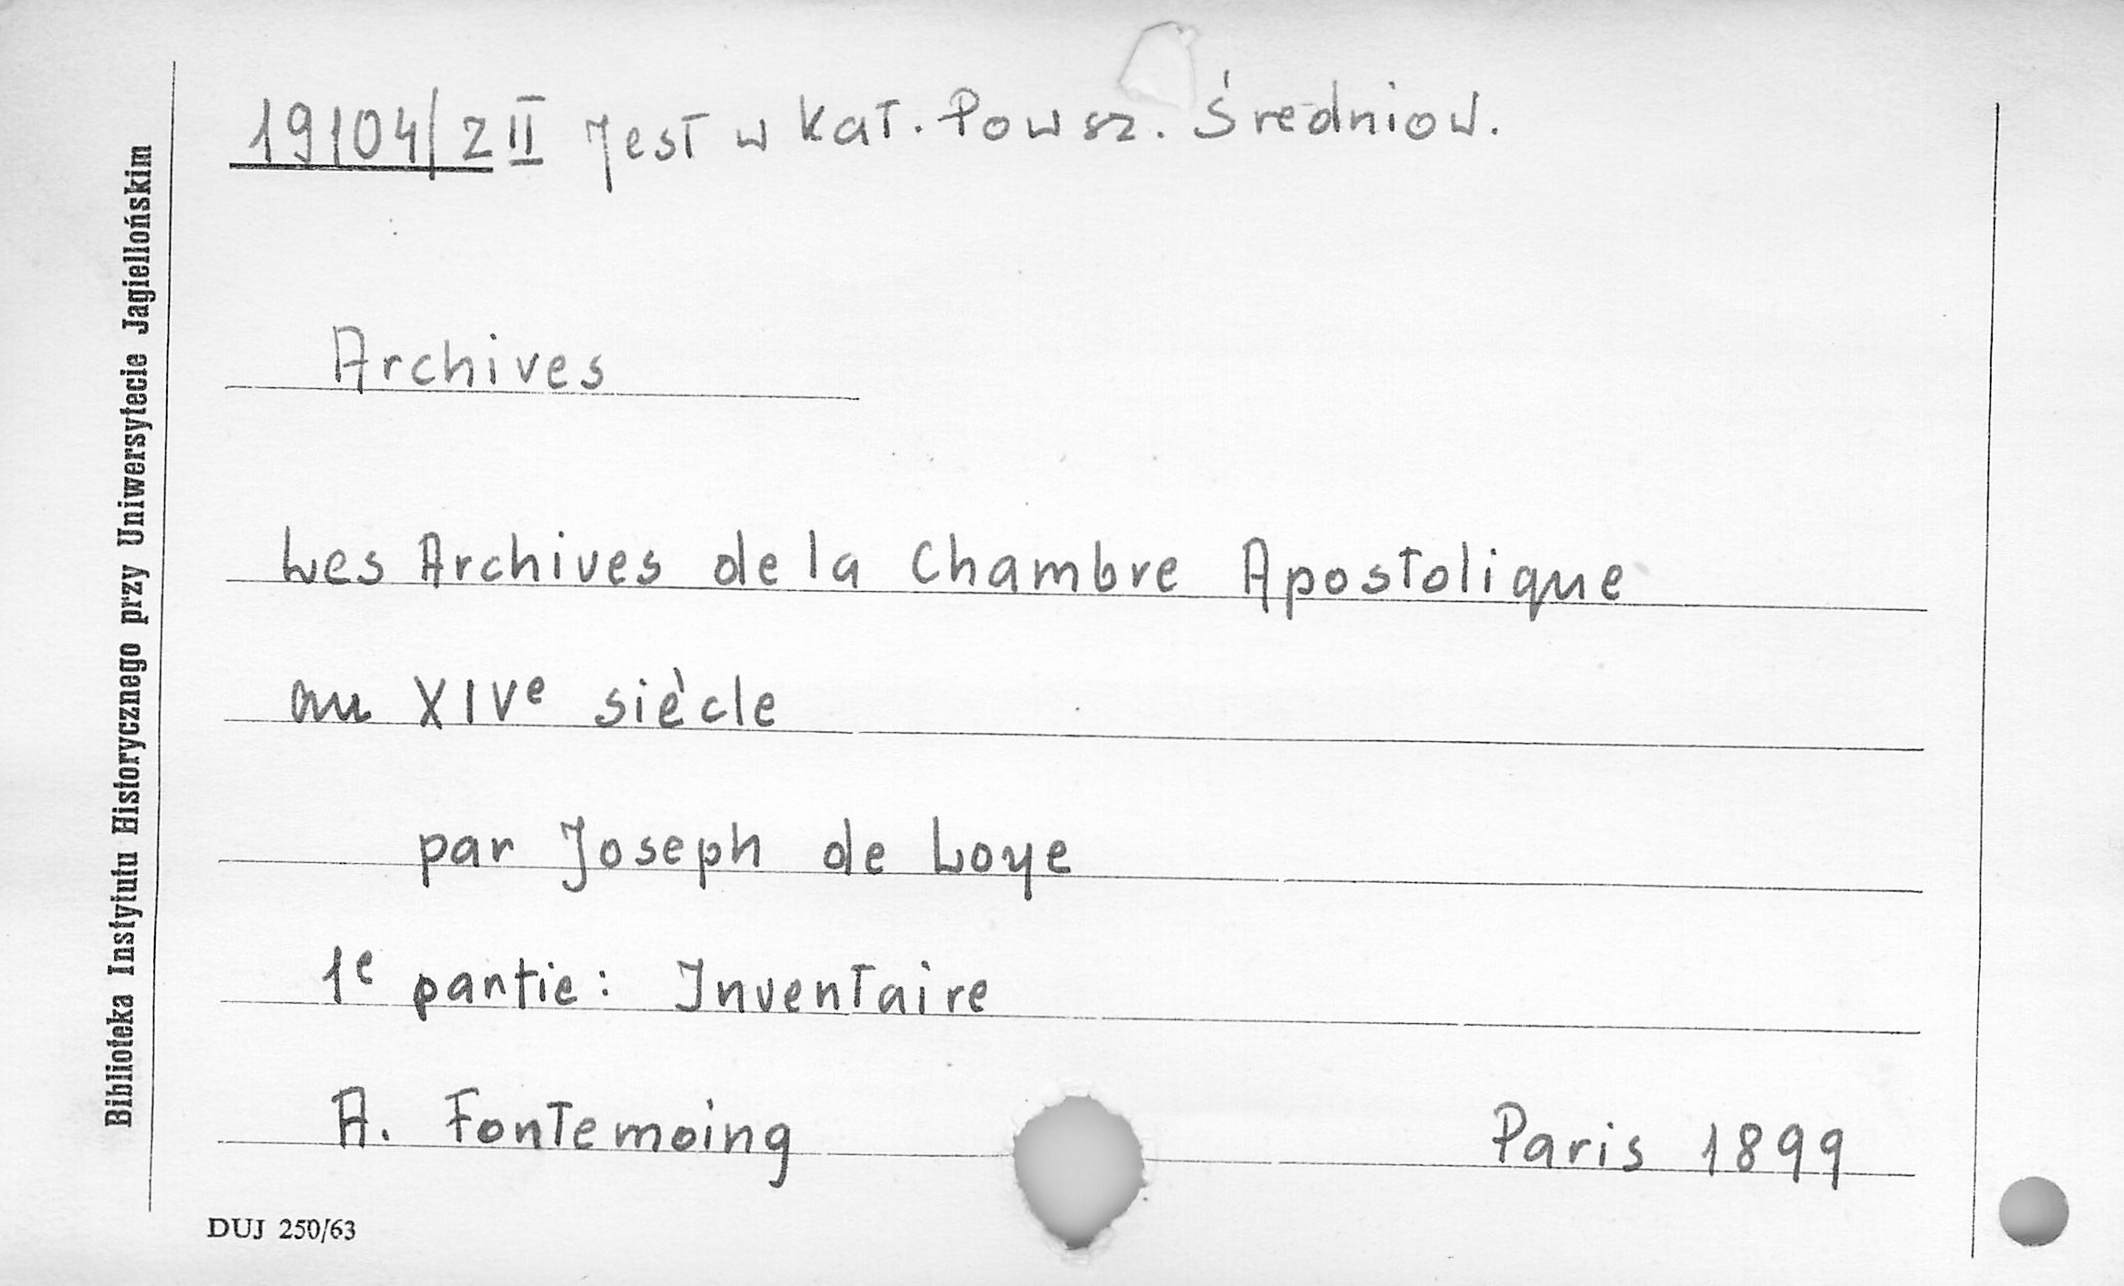 19104/2 II Jest w kat. Powsz. Średniow.
Archives
Les Archives de la Chambre Apostolique
au XIVe siècle
par Joseph de Loye
1e partie: Inventaire
A. Fontemoing Paris 1899
DUJ 250/63
Biblioteka Instytutu Historycznego przy Uniwersytecie Jagiellońskim